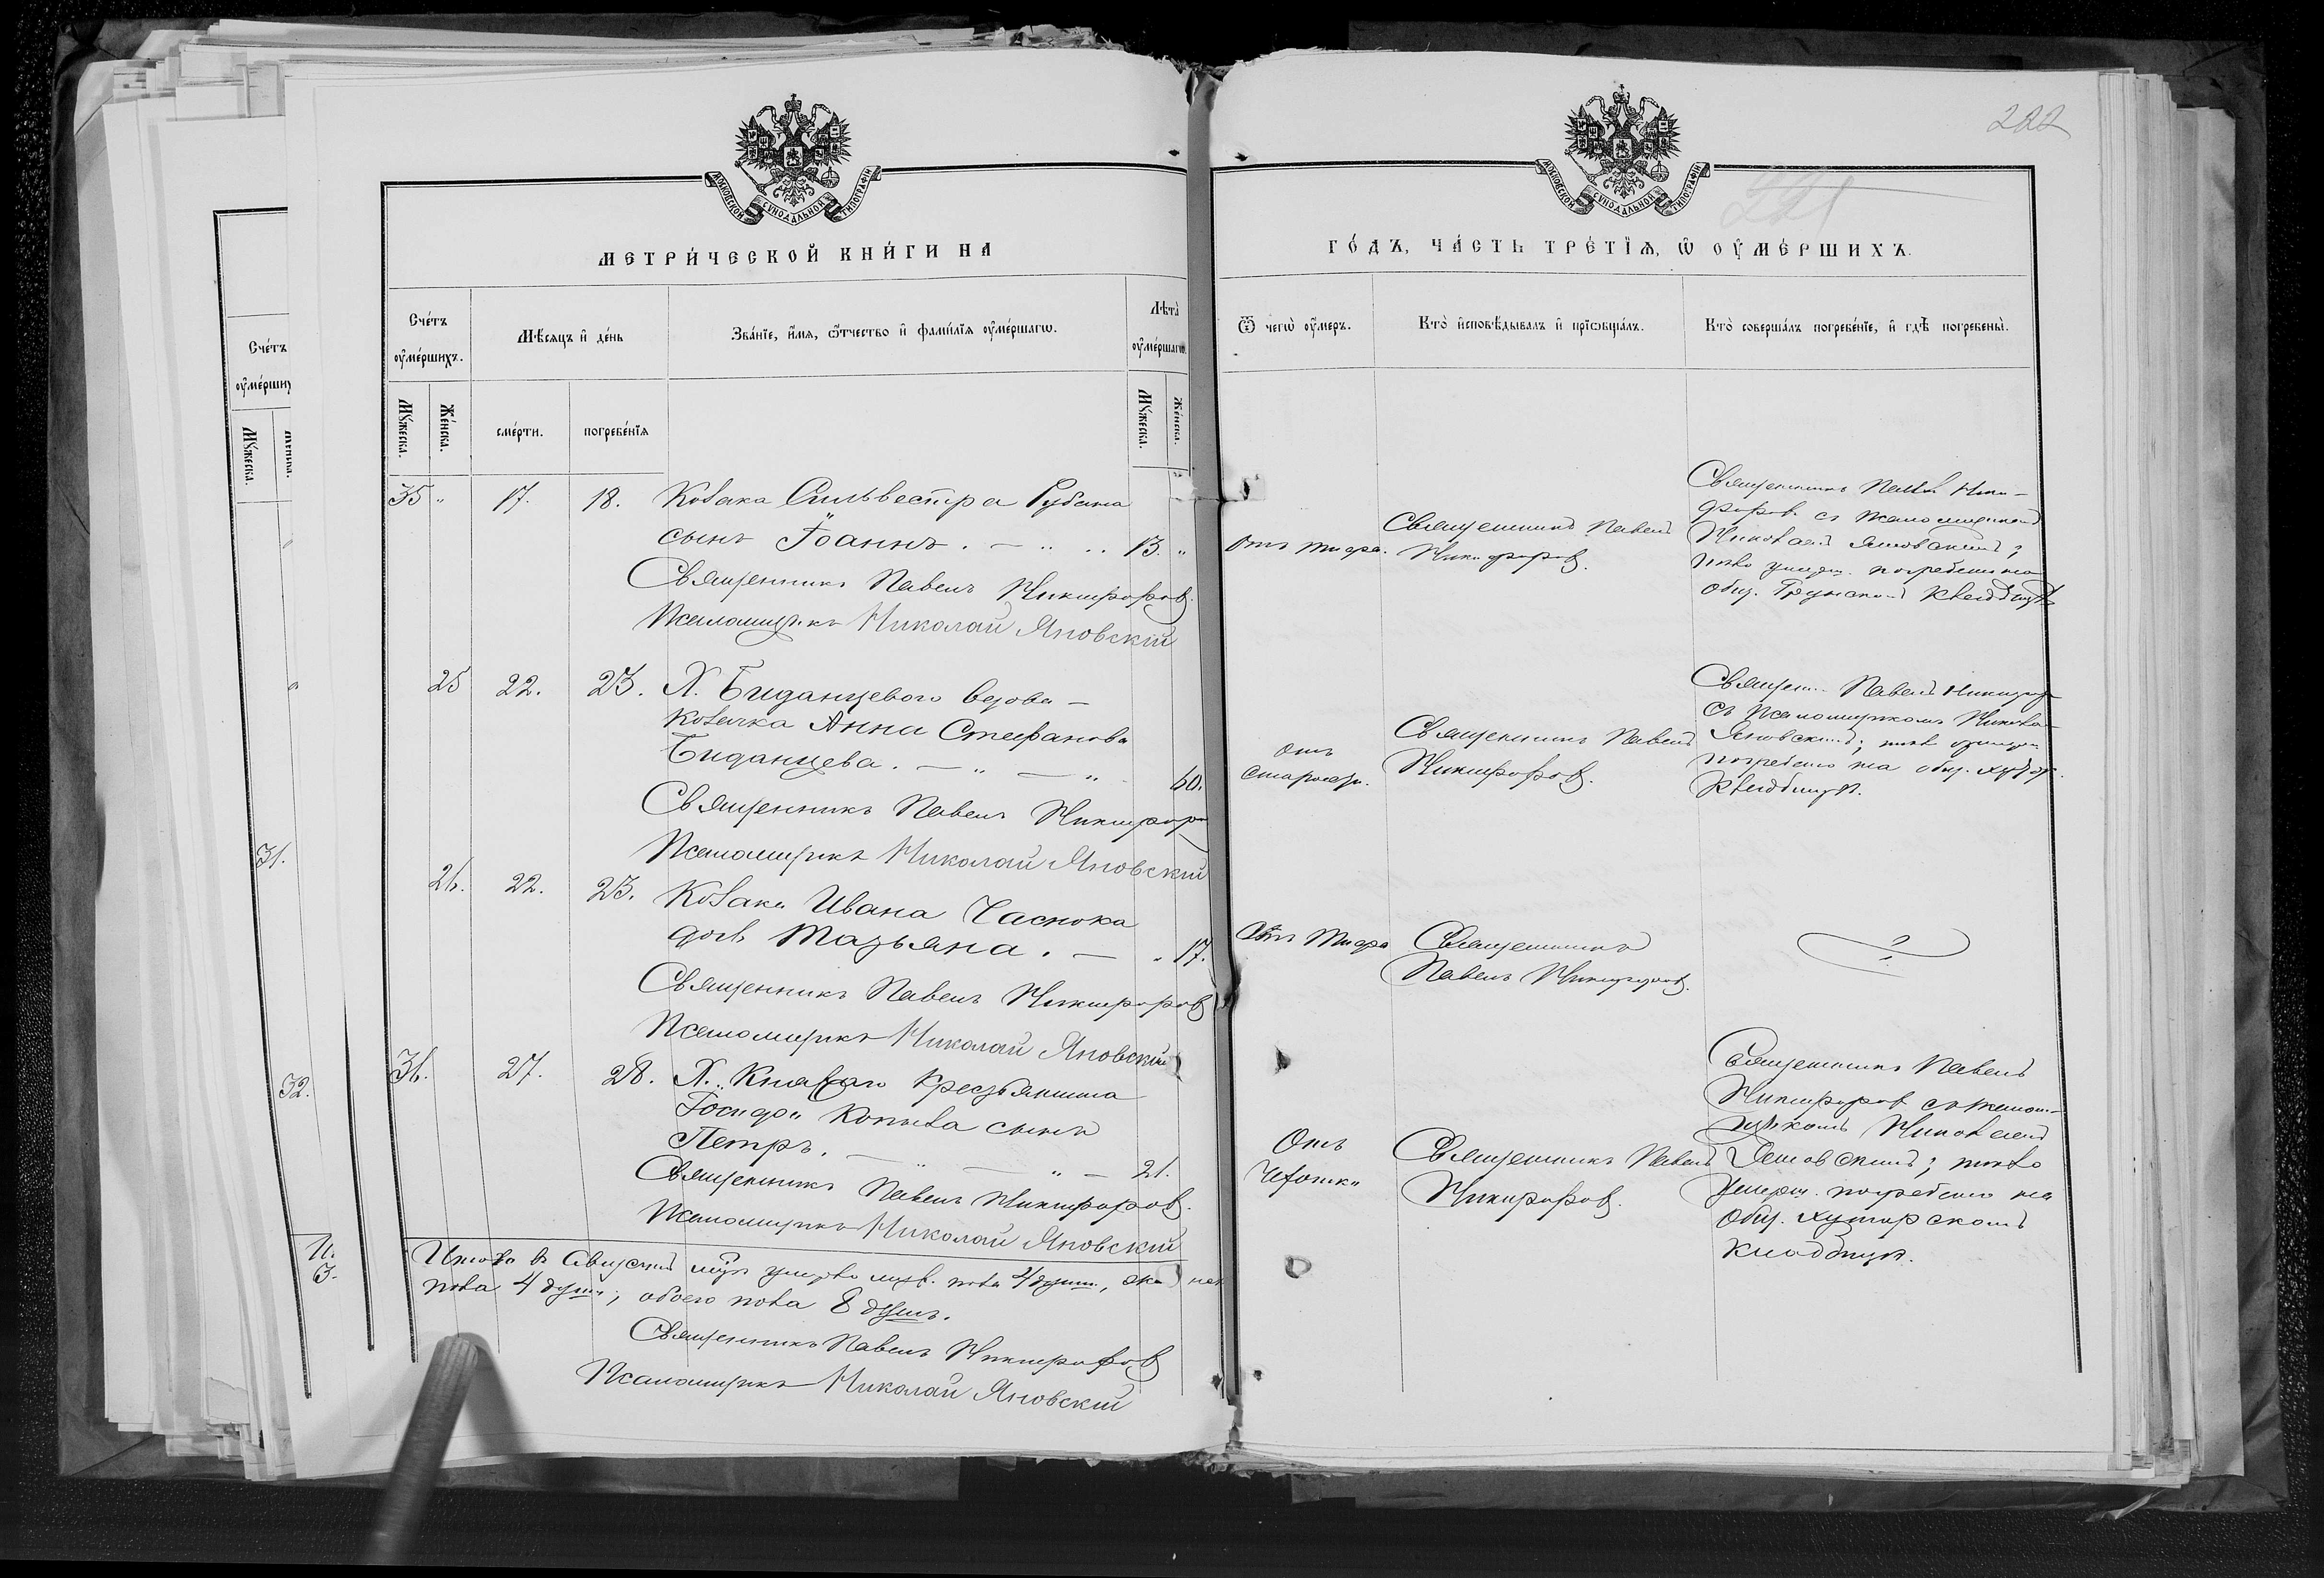 222
221
МОСКОВСКОЙ СѴНОДАЛЬНОЙ ТИПОГРАФІИ
МОСКОВСКОЙ СѴНОДАЛЬНОЙ ТИПОГРАФІИ
МЕТРИ́ЧЕСКОЙ КНИ́ГИ НА
ГО́ДЪ, ЧА́СТЬ ТРЕ́ТЇѦ, Ѡ ОУМЕ́РШИХЪ.
Сче́тъ
оуме́ршихъ.
Мꙋ́жеска.
Же́нска.
Мѣ́сяцъ и де́нь
сме́рти.
погребе́нїѧ
Зва́нїе, и́мѧ, ѻ҆́тчество и фами́лїѧ оуме́ршагѡ.
Лѣта̀
оуме́ршагѡ.
Мꙋ́жеска.
Же́нска.
Ѿ чегѡ̀ оу́меръ.
Кто̀ и҆сповѣ́дывалъ и҆ прїѡбща́лъ.
Кто̀ соверша́лъ погребе́нїе, и҆ гдѣ̀ погребены̀.
Сче́тъ
31.
32.
35 " 17. 18. Козака Сильвестра Губана
сынъ Іоаннъ . — " .. 13. "
Священникъ Павелъ Никифоровъ
Псаломщикъ Николай Яновскій
Отъ тифа.
Священникъ Павелъ
Никифоровъ.
Священникъ Павелъ Ники-
форовъ съ псаломщикомъ
Николаемъ Яновскимъ;
тѣло умерш. погребено на
общ. кладбищѣ
25 22. 23. Х. Биданцевого вдова –
козачка Анна Стефанова
Биданцева. — " — " 60.
Священникъ Павелъ Никифоровъ
Псаломщикъ Николай Яновскій
отъ
старости.
Священникъ Павелъ
Никифоровъ.
Священ. Павелъ Никифор
съ псаломщикомъ Никола-
Яновскимъ; тѣло умерш
погребено на общ. хутор.
кладбищѣ.
26. 22. 23. Козака Ивана Часнока
дочь Марьяна. — " 17.
Священникъ Павелъ Никифоровъ
Псаломщикъ Николай Яновскій
Отъ тифа
Священникъ
Павелъ Никифоровъ.
36. 27. 28. Х. крестьянина
сынъ
Петръ. — " — " — 21.
Священникъ Павелъ Никифоровъ.
Псаломщикъ Николай Яновскій
Отъ
Чахотки
Священникъ Павелъ
Никифоровъ.
Священникъ Павелъ
Никифоровъ съ псалом-
щикомъ Николаемъ
Яновскимъ; тѣло
умерш. погребено на
общ. хуторскомъ
кладбищѣ.
Итого въ Августѣ умерло муж. пола 4 души, жен
пола 4 души; обоего пола 8 душъ.
Священникъ Павелъ Никифоровъ
Псаломщикъ Николай Яновскій